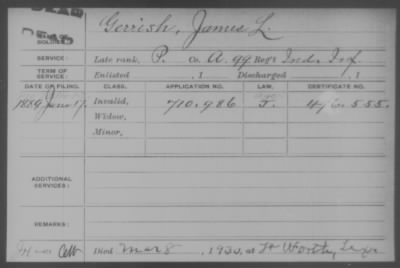 DEAD
DEAD
SOLDIER: Gerrish, James L.
SERVICE: Late rank, P. Co. A. 99 Reg't Ind. Inf.
TERM OF SERVICE: Enlisted , 1 Discharged , 1
DATE OF FILING. CLASS. APPLICATION NO. LAW. CERTIFICATE NO.
1889 June 17. Invalid, 710.986
Widow,
Minor,
ADDITIONAL SERVICES:
REMARKS:
Died Mar 8, 1930, at Ft Worth, Tex